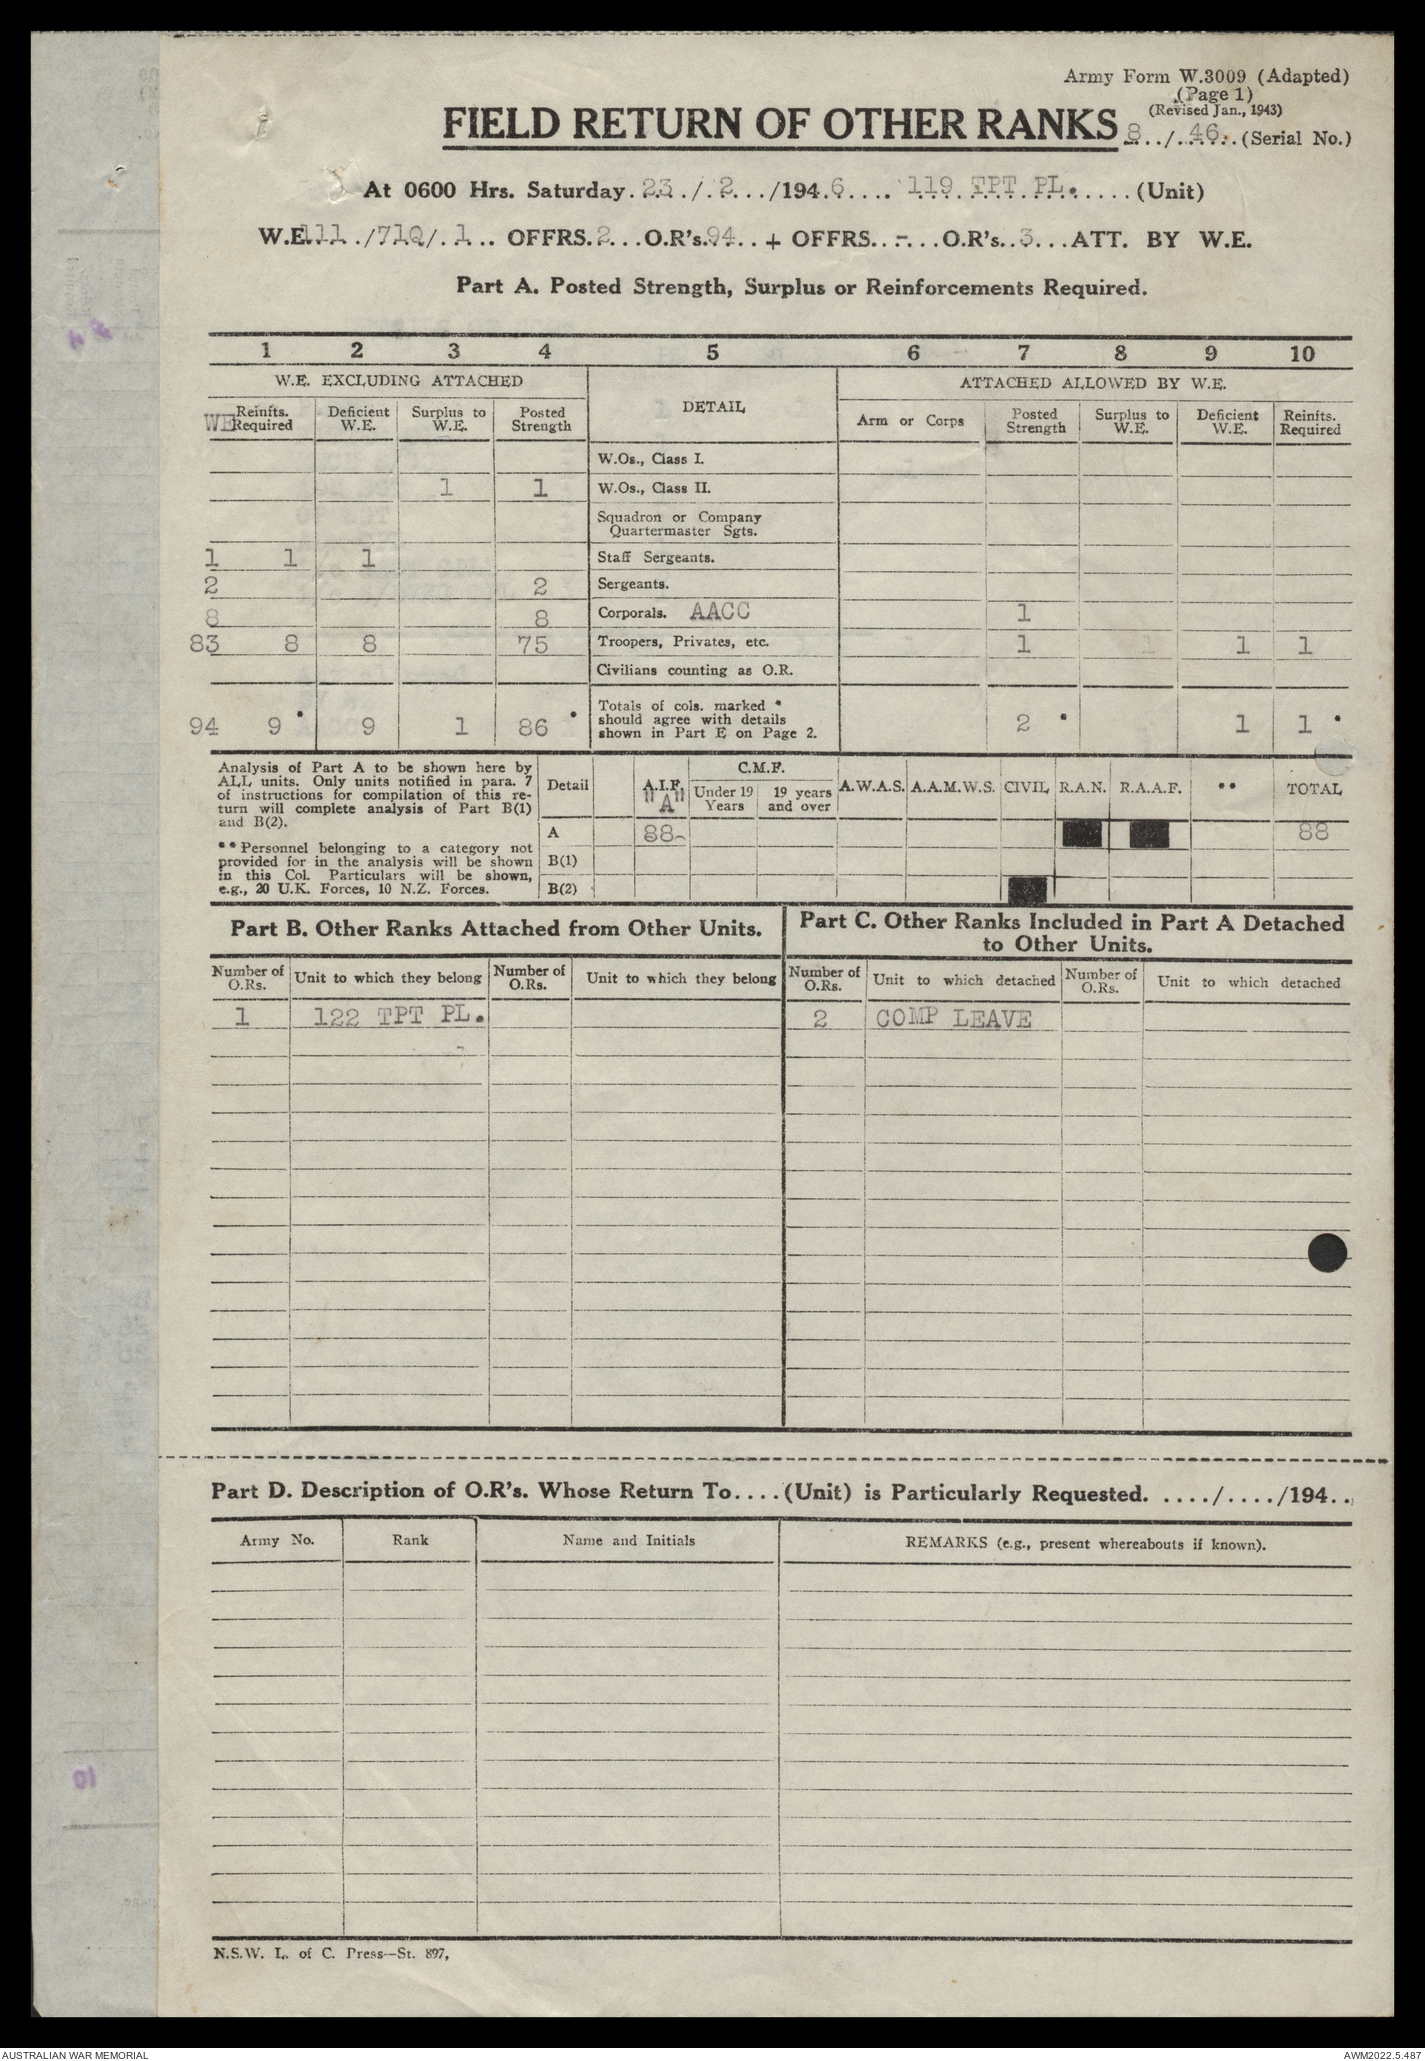 Army Form W.3009 (Adapted)
(Page 1)
(Revised Jan., 1943)
FIELD RETURN OF OTHER RANKS 8../.46..(Serial No.)
At 0600 Hrs. Saturday. 23 ./. 2 .../194.6.... 119 TPT PL. ..... (Unit)
W.E.111 ./71Q/. 1 .. OFFRS.2...O.R's.94.. + OFFRS..-...O.R's..3...ATT. BY W.E.
Part A. Posted Strength, Surplus or Reinforcements Required.
1 2 3 4 5 6 7 8 9 10
W.E. EXCLUDING ATTACHED DETAIL ATTACHED ALLOWED BY W.E.
WE Reinfts. Required Deficient W.E. Surplus to W.E. Posted Strength Arm or Corps Posted Strength Surplus to W.E. Deficient W.E. Reinfts. Required
W.Os., Class I.
1 1 W.Os., Class II.
Squadron or Company
Quartermaster Sgts.
1 1 1 Staff Sergeants.
2 2 Sergeants.
8 8 Corporals. AACC 1
83 8 8 75 Troopers, Privates, etc. 1 1 1
Civilians counting as O.R.
Totals of cols. marked *
should agree with details
94 9 * 9 1 86 * shown in Part E on Page 2. 2 * 1 1 *
Analysis of Part A to be shown here by
ALL units. Only units notified in para. 7
of instructions for compilation of this re-
turn will complete analysis of Part B(1)
and B(2).
** Personnel belonging to a category not
provided for in the analysis will be shown
in this Col. Particulars will be shown,
e.g., 20 U.K. Forces, 10 N.Z. Forces.
Detail A.I.F. "A" C.M.F. Under 19 Years 19 years and over A.W.A.S. A.A.M.W.S. CIVIL R.A.N. R.A.A.F. ** TOTAL
A 88 88
B(1)
B(2)
Part B. Other Ranks Attached from Other Units.
Part C. Other Ranks Included in Part A Detached
to Other Units.
Number of O.Rs. Unit to which they belong Number of O.Rs. Unit to which they belong Number of O.Rs. Unit to which detached Number of O.Rs. Unit to which detached
1 122 TPT PL. 2 COMP LEAVE
Part D. Description of O.R's. Whose Return To....(Unit) is Particularly Requested. ..../..../194..
Army No. Rank Name and Initials REMARKS (e.g., present whereabouts if known).
N.S.W. L. of C. Press—St. 897,
AUSTRALIAN WAR MEMORIAL
AWM2022.5.487